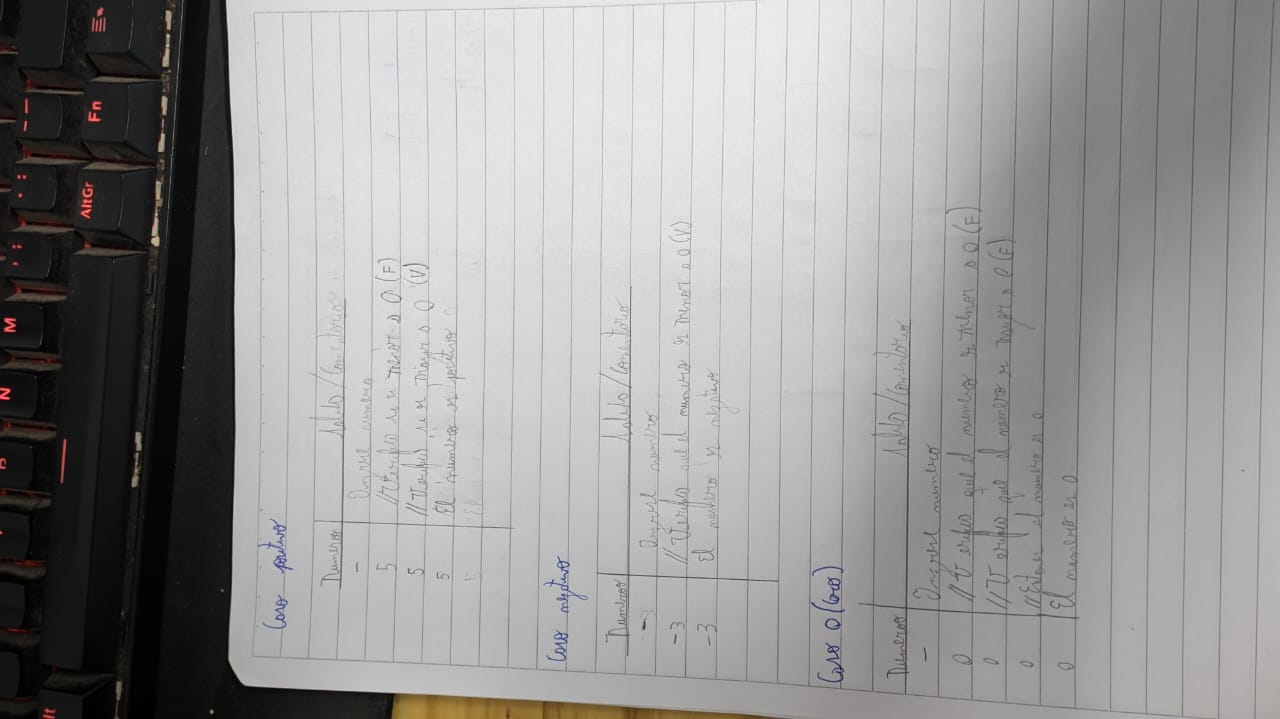 N M , ; . : _ -
lt AltGr Fn
Caso positivo
Numeros Salida/Comentario
- Ingrese numero
5 //Verifico si es menor a 0 (F)
5 //Verifico si es mayor a 0 (V)
5 El numero es positivo
5
Caso negativo
Numeros Salida/Comentario
- Ingrese numero
-3 //Verifico que el numero es menor a 0 (V)
-3 El numero es negativo
Caso 0 (Cero)
Numeros Salida/Comentario
- Ingrese numero
0 //Verifico que el numero es menor a 0 (F)
0 //Verifico que el numero es mayor a 0 (F)
0 //Entonces el numero es 0
0 El numero es 0